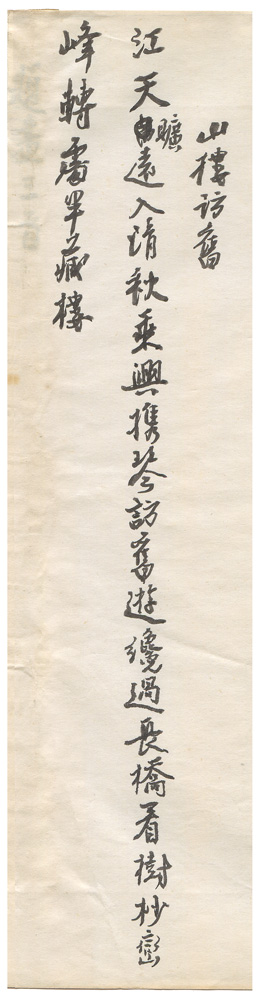 山樓訪舊
江天曠遠入清秋乘興携琴訪舊遊纔過長橋看樹杪巒
峰轉處半藏樓